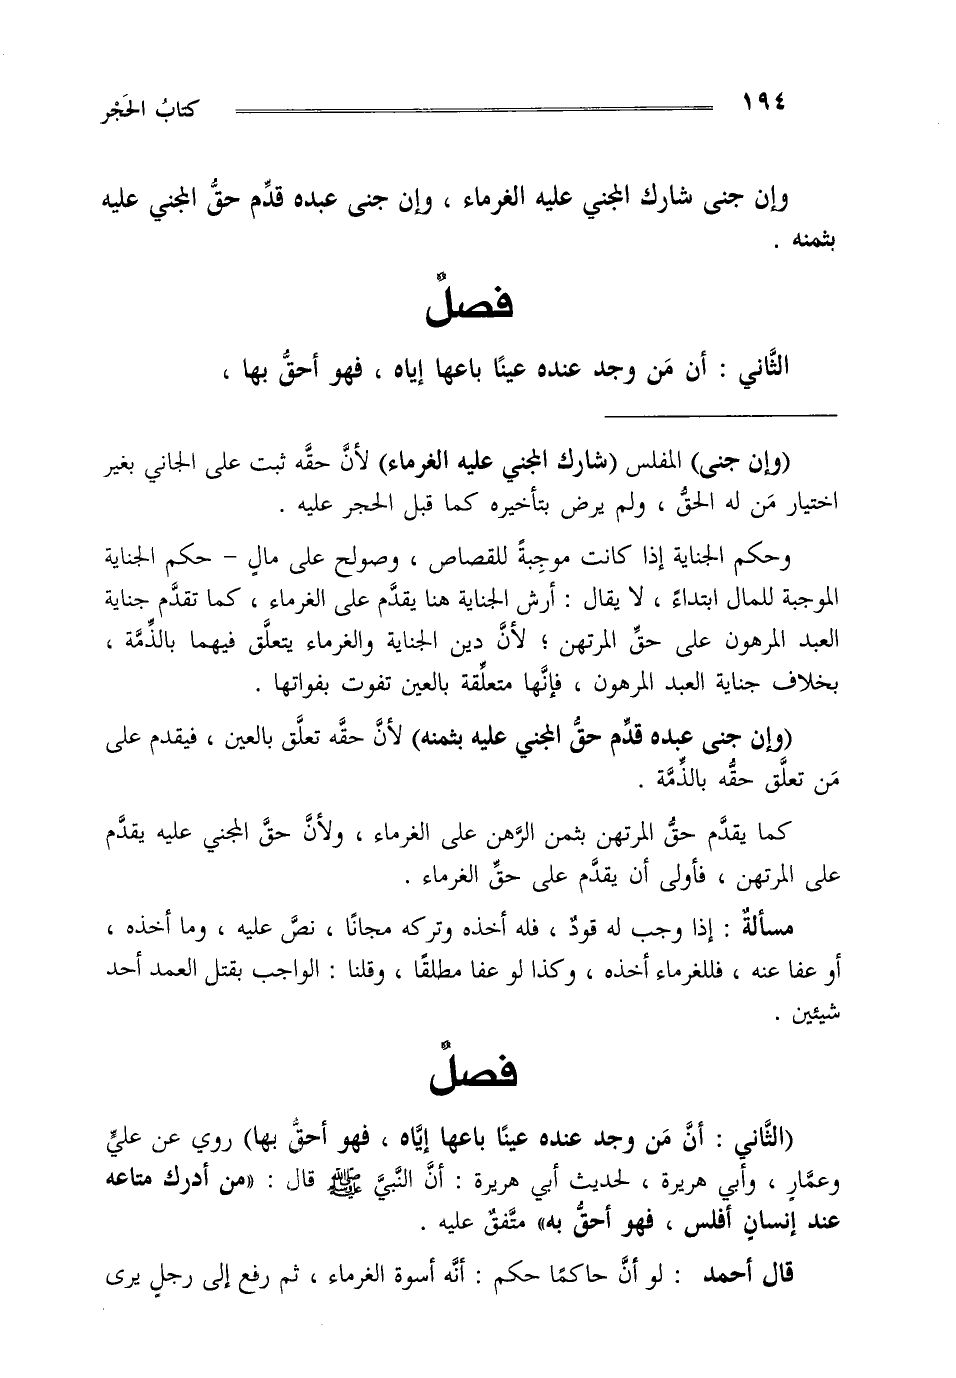 ١٩٤
كتابُ الحَجْر
وإن جنى شارك المجني عليه الغرماء ، وإن جنى عبده قدِّم حقُّ المجني عليه
بثمنه .
فصلٌ
الثَّاني : أن مَن وجد عنده عينًا باعها إياه ، فهو أحقُّ بها ،
(وإن جنى) المفلس (شارك المجني عليه الغرماء) لأنَّ حقَّه ثبت على الجاني بغير
اختيار مَن له الحقُّ ، ولم يرض بتأخيره كما قبل الحجر عليه .
وحكم الجناية إذا كانت موجِبةً للقصاص ، وصولح على مالٍ – حكم الجناية
الموجبة للمال ابتداءً ، لا يقال : أرش الجناية هنا يقدَّم على الغرماء ، كما تقدَّم جناية
العبد المرهون على حقِّ المرتهن ؛ لأنَّ دين الجناية والغرماء يتعلَّق فيهما بالذِّمَّة ،
بخلاف جناية العبد المرهون ، فإنَّها متعلِّقة بالعين تفوت بفواتها .
(وإن جنى عبده قدِّم حقُّ المجني عليه بثمنه) لأنَّ حقَّه تعلَّق بالعين ، فيقدم على
مَن تعلَّق حقُّه بالذِّمَّة .
كما يقدَّم حقُّ المرتهن بثمن الرَّهن على الغرماء ، ولأنَّ حقَّ المجني عليه يقدَّم
على المرتهن ، فأولى أن يقدَّم على حقِّ الغرماء .
مسألةٌ : إذا وجب له قودٌ ، فله أخذه وتركه مجانًا ، نصَّ عليه ، وما أخذه ،
أو عفا عنه ، فللغرماء أخذه ، وكذا لو عفا مطلقًا ، وقلنا : الواجب بقتل العمد أحد
شيئين .
فصلٌ
(الثَّاني : أنَّ مَن وجد عنده عينًا باعها إيَّاه ، فهو أحقُّ بها) روي عن عليٍّ
وعمَّارٍ ، وأبي هريرة ، لحديث أبي هريرة : أنَّ النَّبيَّ ﷺ قال : «من أدرك متاعه
عند إنسانٍ أفلس ، فهو أحقُّ به» متَّفقٌ عليه .
قال أحمد : لو أنَّ حاكمًا حكم : أنَّه أسوة الغرماء ، ثم رفع إلى رجلٍ يرى